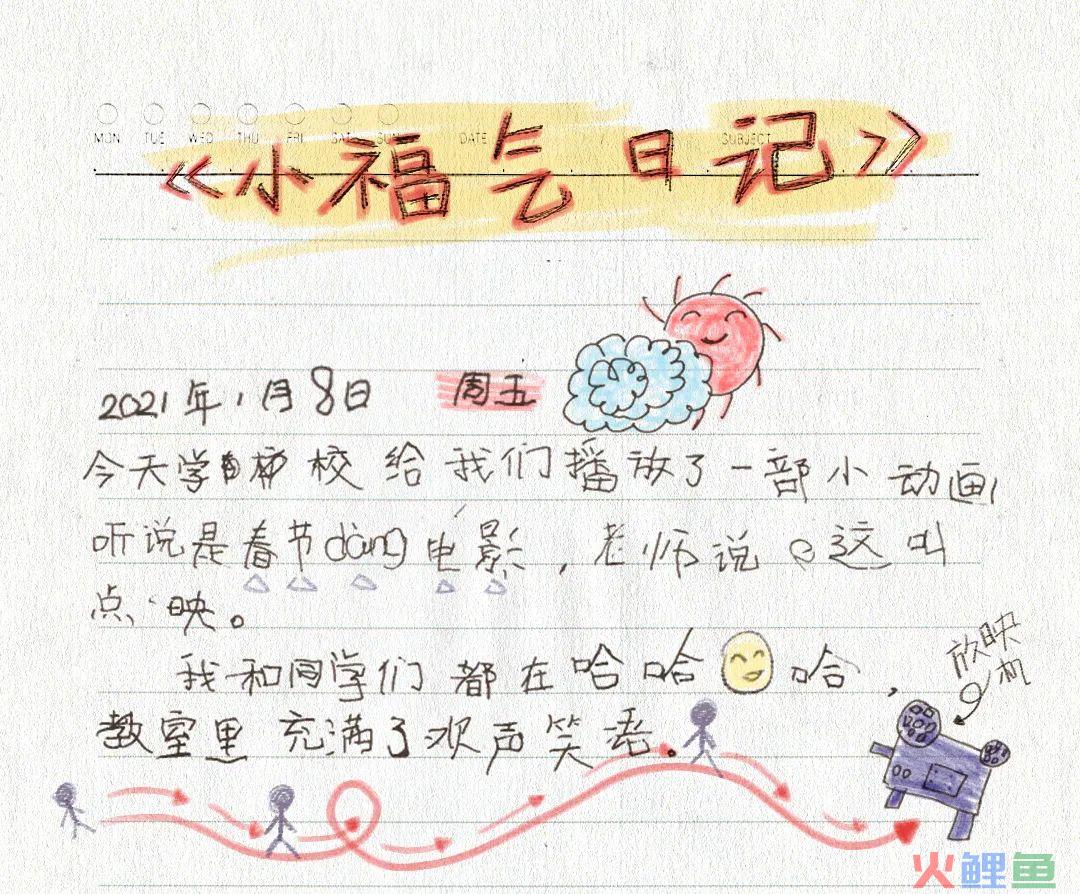 MON TUE WED THU FRI SAT SUN DATE SUBJECT
《小福气日记》
2021年1月8日 周五
今天学校给我们播放了一部小动画
听说是春节dàng电影，老师说这叫
点映。
我和同学们都在哈哈哈，
教室里充满了欢声笑语。
放映机
火鲤鱼